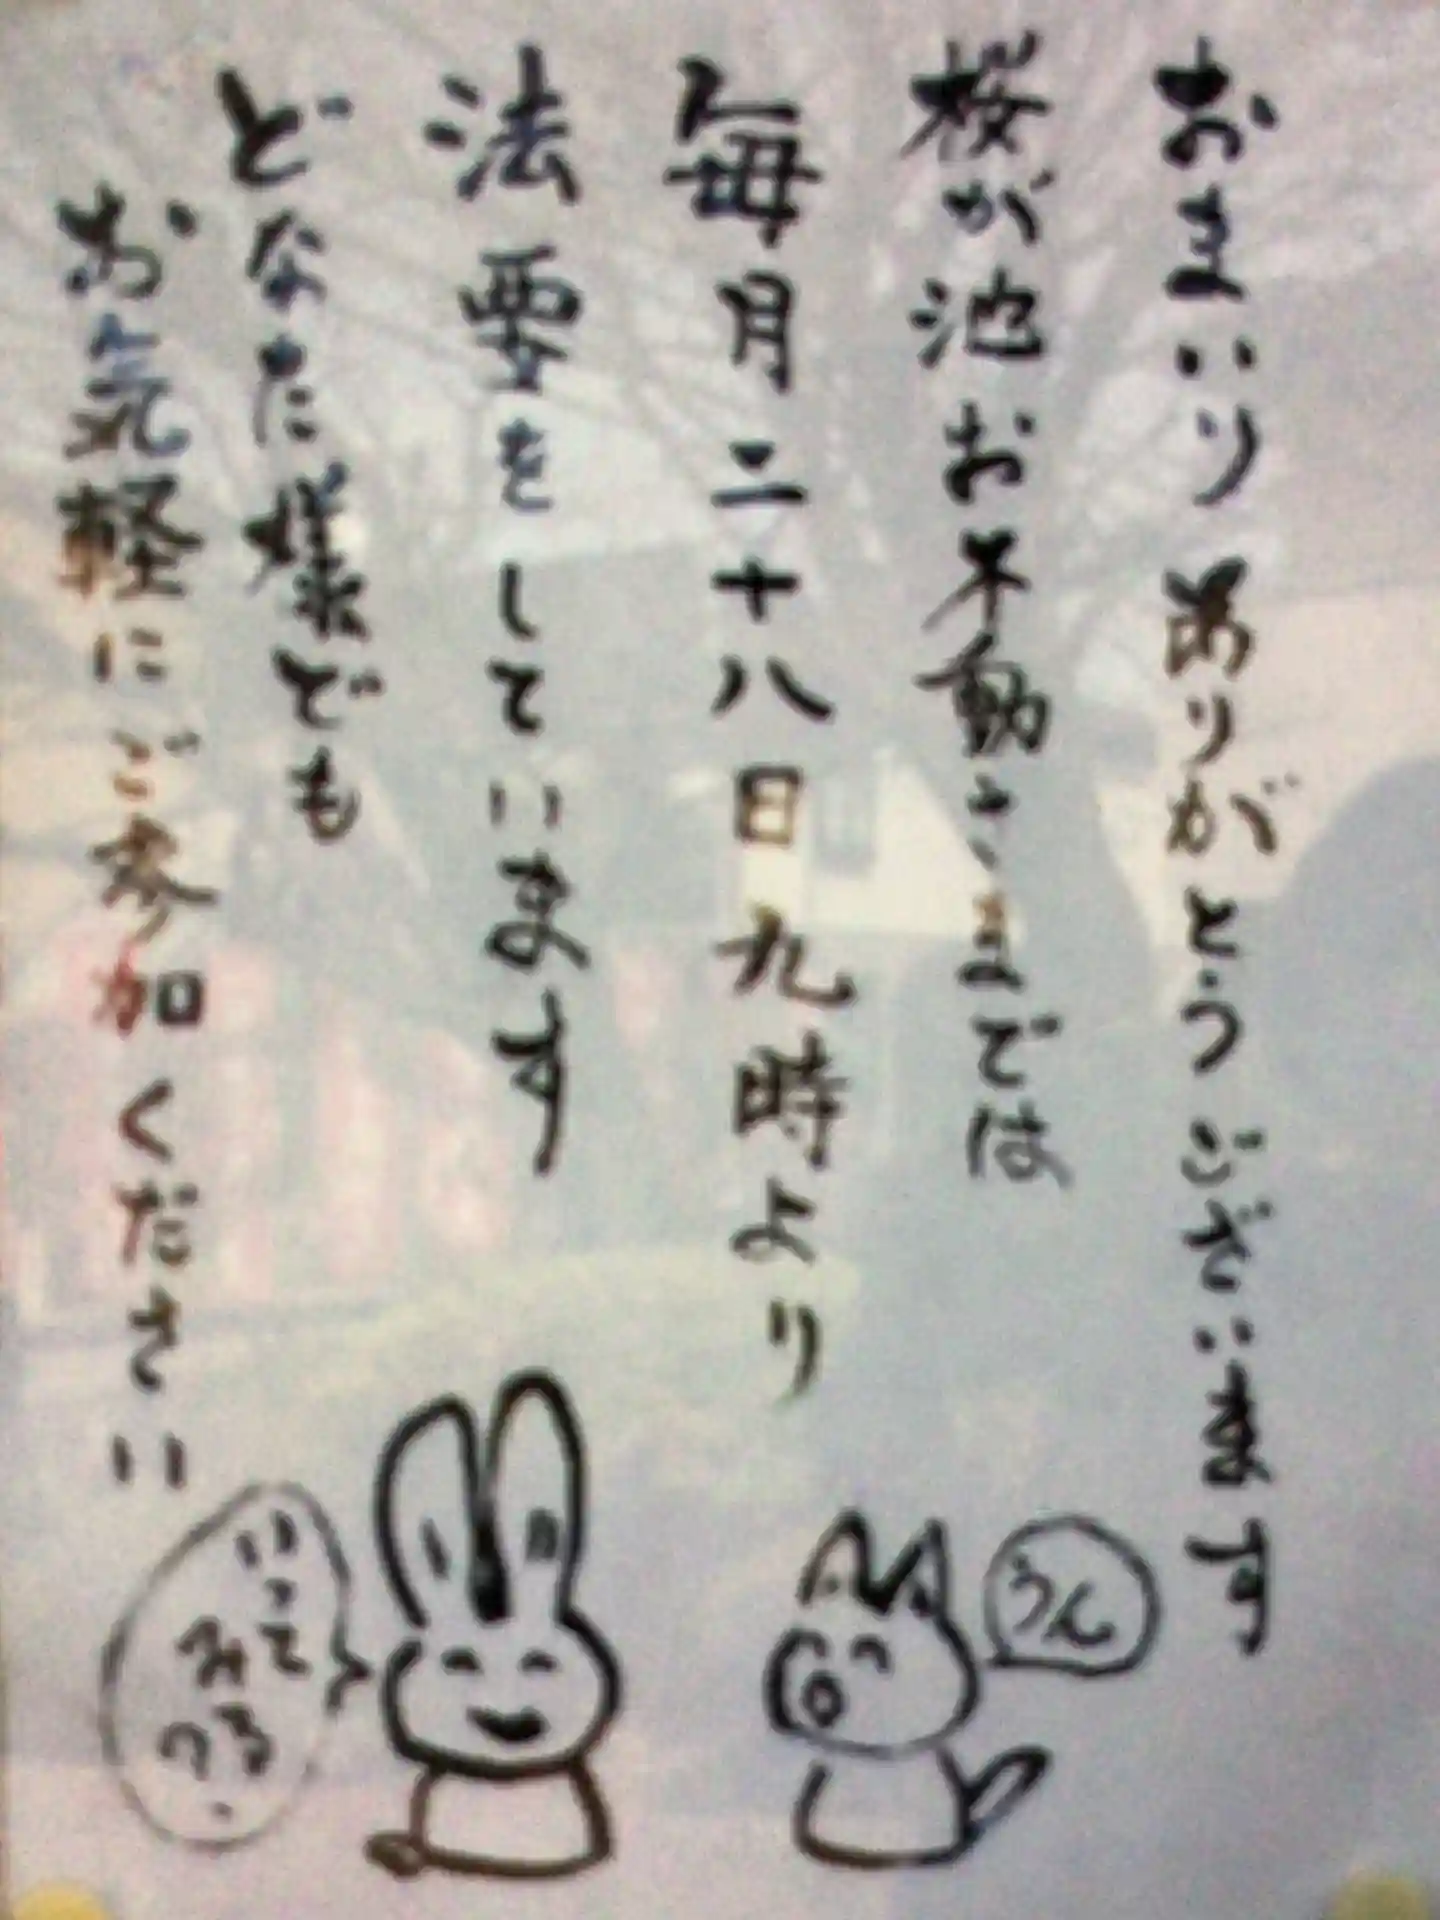 おまいりありがとうございます
桜が池お不動さまでは
毎月二十八日九時より
法要をしています
どなた様でも
お気軽にご参加ください
うん
いって
みる